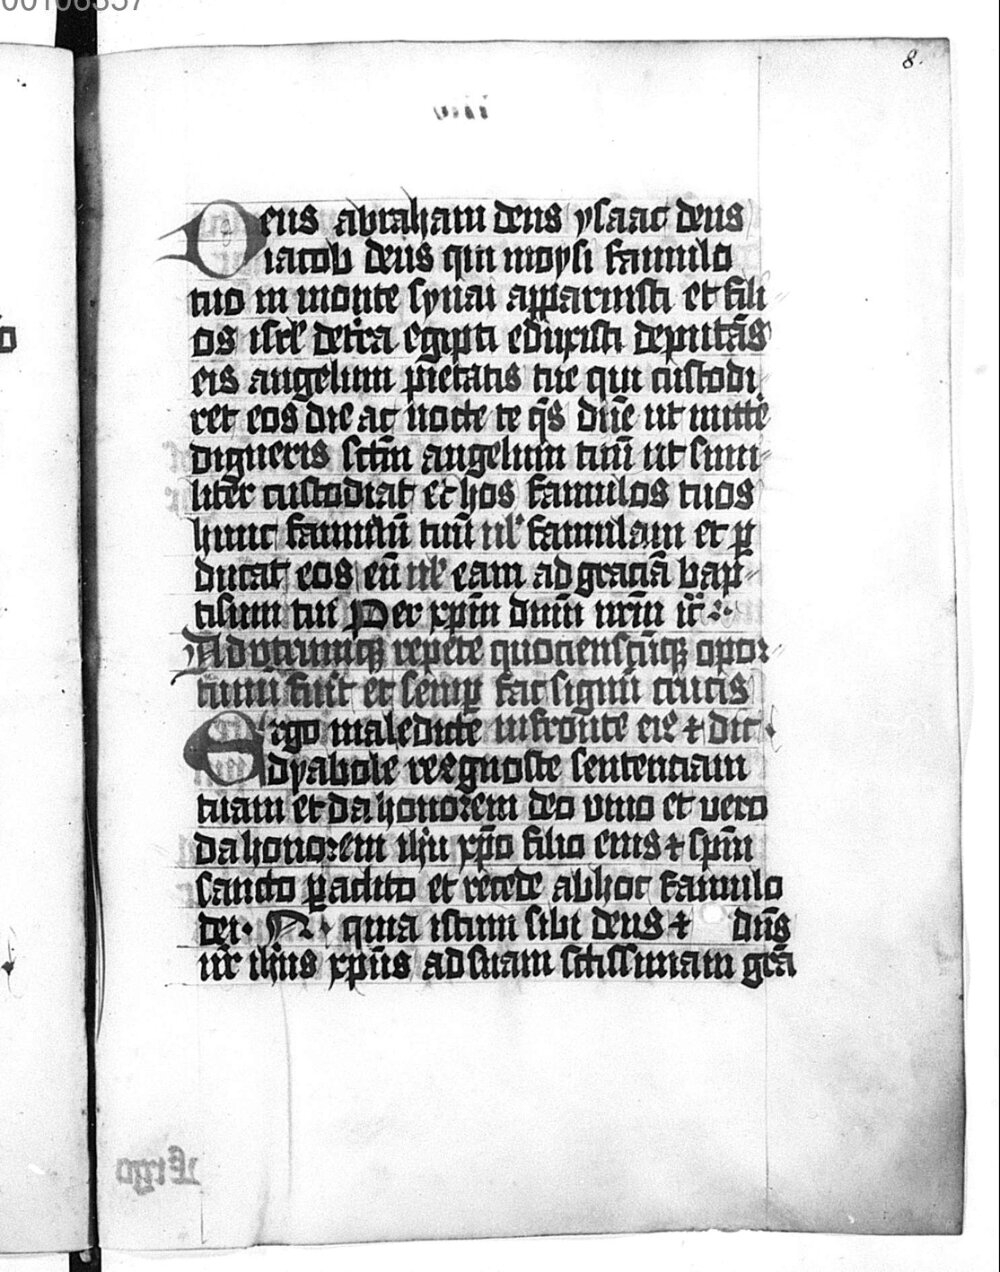 00106357
8.
viii
Deus abraham deus ysaac deus
iacob deus qui moysi famulo
tuo in monte synai apparuisti et fili
os isrl̄ de t̄ra egipti eduxisti deputās
eis angelum pietatis tue qui custodi
ret eos die ac nocte te q̄s dn̄e ut mitte͛
digneris sc̄tm angelum tuū ut simi-
liter custodiat et hos famulos tuos
hunc famulū tuū ul̓ famulam et ꝑ
ducat eos eū ul̓ eam ad graciā bap-
tismi tui Per xp̄m dn̄m nr̄m
Ad utrumqꝫ repete quociensc̄ūqꝫ opor-
tunū fu͛it et semꝑ fac signū crucis
Ergo maledicte in fronte ei⁹ + dic
dyabole recognosce sentenciam
tuam et da honorem deo vivo et vero
da honorem ih̄u xp̄o filio eius + sp̄ui
sancto ꝑaclito et recede ab hoc famulo
dei· N · quia istum sibi deus + dn̄s
nr̄ ih̄us xp̄us ad suam sc̄tissimam gr̄a
Ergo